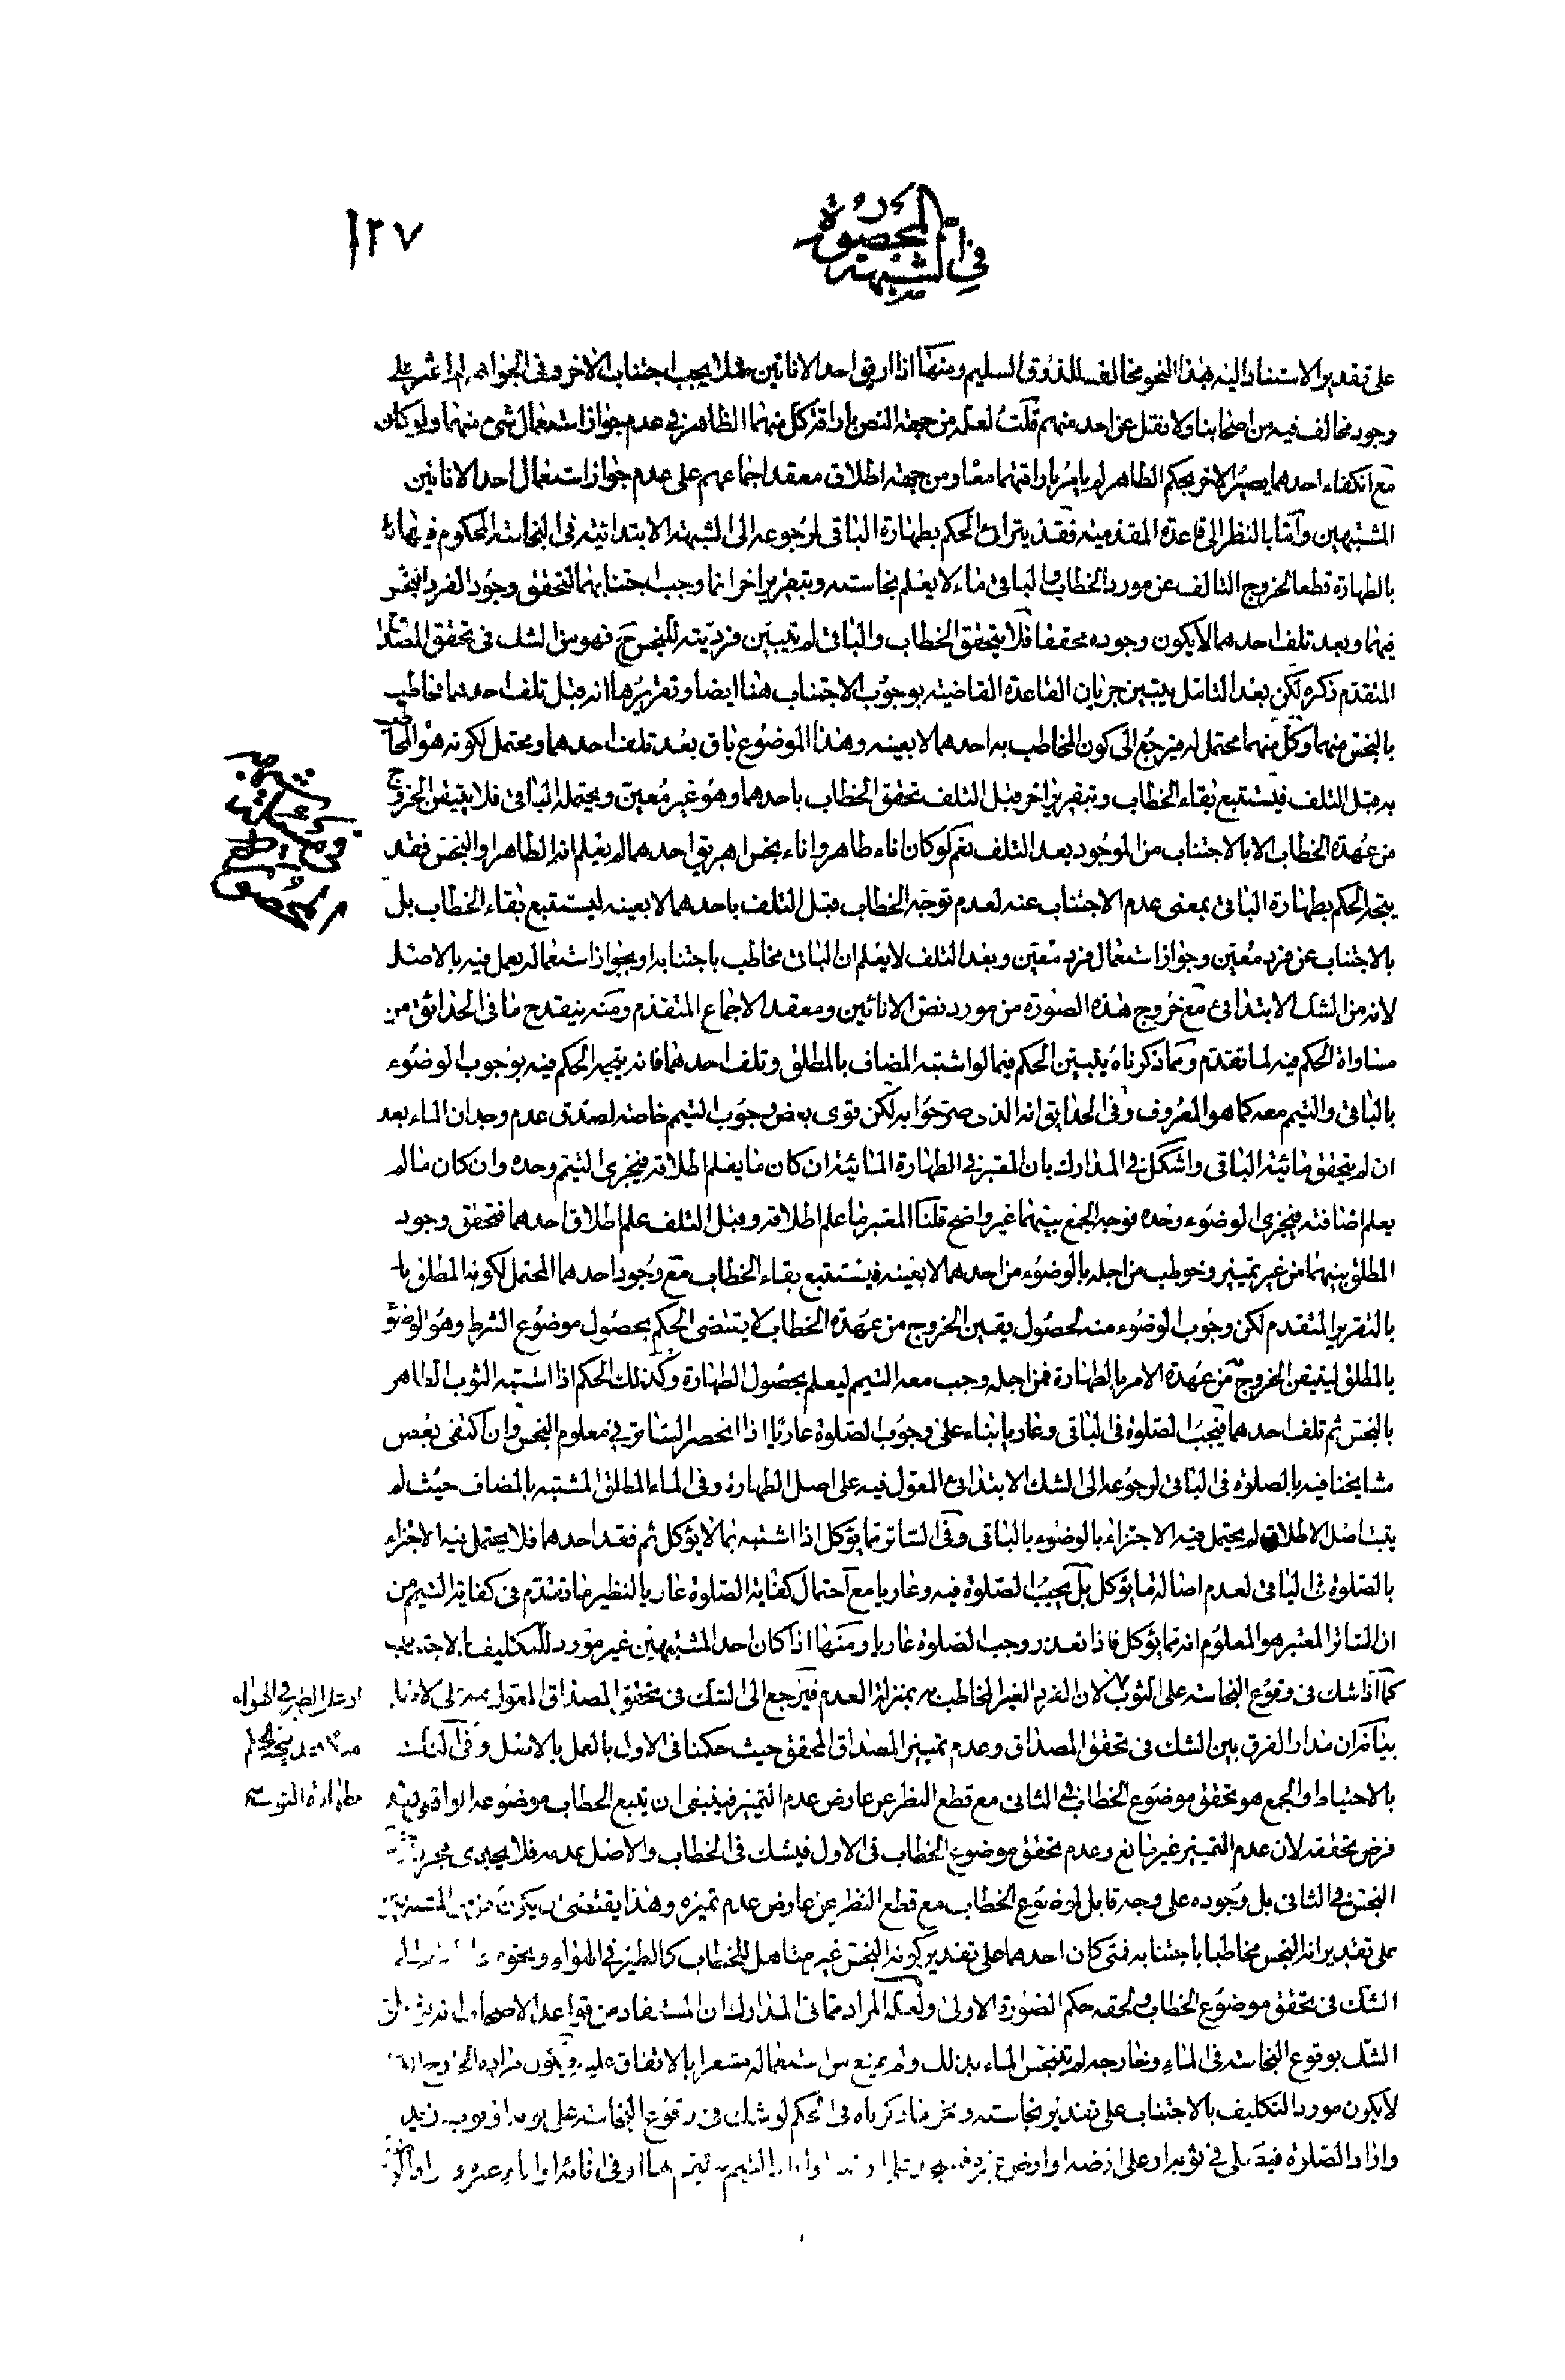 ١٢٧
في الشبهة المحصورة
على تقدير الاستناد اليه بهذا النحو مخالف للذوق السليم ومنها اذا اريق احد الانائين مثلا يجب اجتناب الاخر وفي الجواهر لم اعثر على
وجود مخالف فيه من اصحابنا ولا نقل عن احد منهم قلت لعله من جهة النص باراقة كل منهما الظاهر في عدم جواز استعمال شيء منهما ولو كان
مع انكفاء احدهما يصير الاخر بحكم الطاهر لم يامر باراقتهما معا ومن جهة اطلاق معقد اجماعهم على عدم جواز استعمال احد الانائين
المشتبهين وامّا بالنظر الى قاعدة المقدمية فقد يتراءى الحكم بطهارة الباقي لرجوعه الى الشبهة الابتدائية في النجاسة المحكوم فيها
بالطهارة قطعا لخروج التالف عن مورد الخطاب والباقي ماء لا يعلم بنجاسته وبتقرير اخر انما وجب اجتنابهما لتحقق وجود الفرد النجس
فيهما وبعد تلف احدهما لا يكون وجوده محققا فلا يتحقق الخطاب والباقي لم يتبين فرديته للنجس ح فهو من الشك في تحقق المصداق
المتقدم ذكره لكن بعد التامل يتبين جريان القاعدة القاضية بوجوب الاجتناب هنا ايضا وتقريرها انه قبل تلف احدهما مخاطب
بالنجس منهما وكل منهما محتمل له فيرجع الى كون المخاطب به احدهما لا بعينه وهذا الموضوع باق بعد تلف احدهما ويحتمل لكونه هو المخاطب
به قبل التلف فيستتبع بقاء الخطاب وبتقرير اخر قبل التلف تحقق الخطاب باحدهما وهو غير معين ويحتمله الباقي فلا يتيقن الخروج
من عهدة الخطاب الا بالاجتناب من الموجود بعد التلف نعم لو كان اناء طاهر واناء نجس اهريق احدهما لم يعلم انه الطاهر او النجس فقد
يتجه الحكم بطهارة الباقي بمعنى عدم الاجتناب عنه لعدم توجه الخطاب قبل التلف باحدهما لا بعينه ليستتبع بقاء الخطاب بل
بالاجتناب عن فرد معين وجواز استعمال فرد معين وبعد التلف لا يعلم ان الباقي مخاطب باجتنابه او يجوز استعماله يعمل فيه بالاصل
لانه من الشك الابتدائي مع خروج هذه الصورة من مورد نص الانائين ومعقد الاجماع المتقدم ومنه ينقدح ما في الحدائق من
مساواة الحكم فيه لما تقدم وبما ذكرناه يتبين الحكم فيما لو اشتبه المضاف بالمطلق وتلف احدهما فانه يتجه الحكم فيه بوجوب الوضوء
بالباقي والتيمم معه كما هو المعروف وفي الحدايق انه الذي صرحوا به لكن قوى بعض وجوب التيمم خاصة لصدق عدم وجدان الماء بعد
ان لم يتحقق مائية الباقي واشكل في المدارك بان المعتبر في الطهارة المائية ان كان ما يعلم اطلاقه فيجزي التيمم وحده وان كان ما لم
يعلم اضافته فيجزي الوضوء وحده فوجه الجمع بينهما غير واضح قلنا المعتبر ما علم اطلاقه وقبل التلف علم اطلاق احدهما فتحقق وجود
المطلق بينهما من غير تميز وخوطب من اجله بالوضوء من احدهما لا بعينه فيستتبع بقاء الخطاب مع وجود احدهما المحتمل لكونه المطلق
بالتقرير المتقدم لكن وجوب الوضوء منه لحصول يقين الخروج من عهدة الخطاب لا يقتضي الحكم بحصول موضوع الشرط وهو الوضوء
بالمطلق ليتيقن الخروج من عهدة الامر بالطهارة فمن اجله وجب معه التيمم ليعلم بحصول الطهارة وكذلك الحكم اذا اشتبه الثوب الطاهر
بالنجس ثم تلف احدهما فيجب الصلوة في الباقي وعاريا بناء على وجوب الصلوة عاريا اذا انحصر الساتر في معلوم النجس وان اكتفى بعض
مشايخنا فيه بالصلوة في الباقي لرجوعه الى الشك الابتدائي المعول فيه على اصل الطهارة وفي الماء المطلق المشتبه بالمضاف حيث لم
يثبت اصل الاطلاق لم يحتمل فيه الاجتزاء بالوضوء بالباقي وفي الساتر مما يؤكل اذا اشتبه بما لا يؤكل ثم فقد احدهما فلا يحتمل فيه الاجتزاء
بالصلوة في الباقي لعدم اصالة ما يؤكل بل يجب الصلوة فيه وعاريا مع احتمال كفاية الصلوة عاريا لنظير ما تقدم في كفاية التيمم من
ان الساتر المعتبر هو المعلوم انه مما يؤكل فاذا تعذر وجب الصلوة عاريا ومنها اذا كان احد المشتبهين غير مورد للتكليف بالاجتناب
كما اذا شك في وقوع النجاسة على الثوب لان الفرد الغير المخاطب به بمنزلة العدم فيرجع الى الشك في تحقق المصداق المعول فيه على الاصل
بيانه ان مدار الفرق بين الشك في تحقق المصداق وعدم تميز المصداق المحقق حيث حكمنا في الاول بالعمل بالاصل وفي الثاني
بالاحتياط والجمع هو تحقق موضوع الخطاب في الثاني مع قطع النظر عن عارض عدم التميز فينبغي ان يتبع الخطاب موضوعه الواقعي بعد
فرض تحققه لان عدم التميز غير مانع وعدم تحقق موضوع الخطاب في الاول فيشك في الخطاب والاصل عدمه فلا يجدي
النجس في الثاني بل وجوده على وجه قابل لموضوع الخطاب مع قطع النظر عن عارض عدم تميزه وهذا يقتضي ان يكون من المشتبهين
على تقدير انه النجس مخاطبا باجتنابه فمتى كان احدهما على تقدير كونه النجس غير متاهل للخطاب كالطير في الهواء ونحوه
الشك في تحقق موضوع الخطاب ولحقه حكم الصورة الاولى ولعله المراد مما في المدارك ان المستفاد من قواعد الاصحاب انه
الشك بوقوع النجاسة في الماء وخارجه لم تنجس الماء بذلك ولم يمنع من استعماله مشعرا بالاتفاق عليه ويكون مراده الخارج
لا يكون مورد التكليف بالاجتناب على تقدير نجاسته ونحو ما ذكرناه في الحكم لو شك في وقوع النجاسة على ثوبه او ثوب زيد
واراد الصلوة فيصلي في ثوبه او على ارضه او ارض
او على الطير في الهواء
يتجه الحكم
بطهارة الثوب